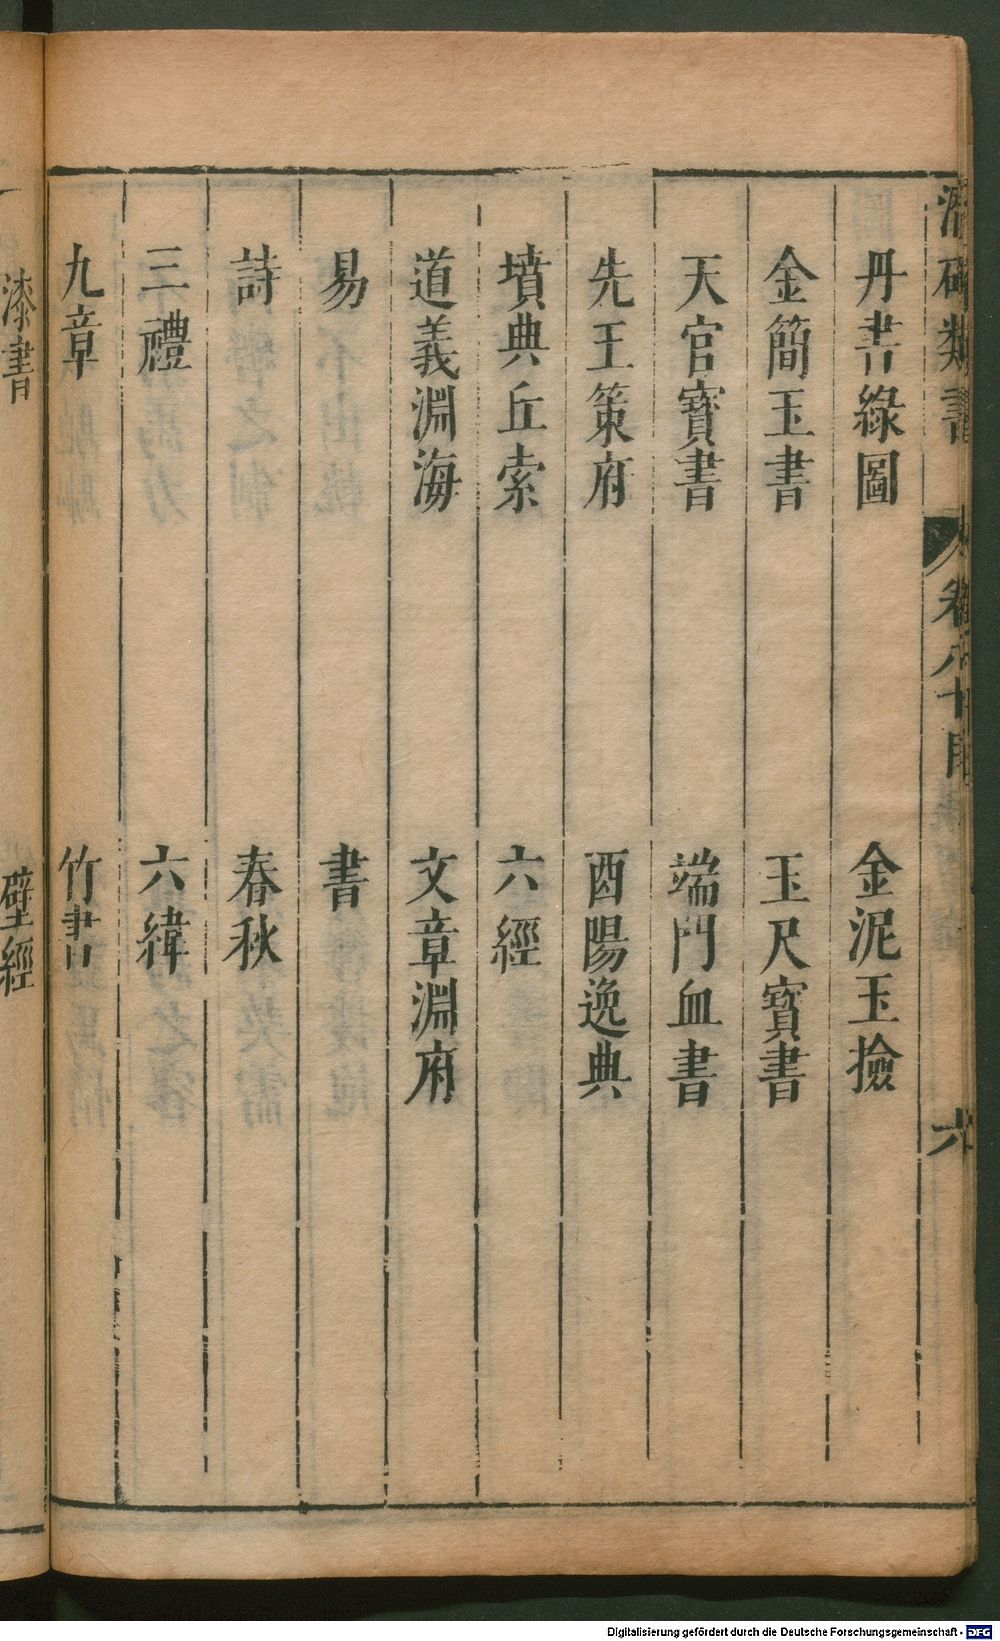 潛確類書 卷八十目 六
丹書綠圖 金泥玉撿
金簡玉書 玉尺寶書
天官寶書 端門血書
先王策府 酉陽逸典
墳典丘索 六經
道義淵海 文章淵府
易 書
詩 春秋
三禮 六緯
九章 竹書
漆書 壁經
Digitalisierung gefördert durch die Deutsche Forschungsgemeinschaft - DFG